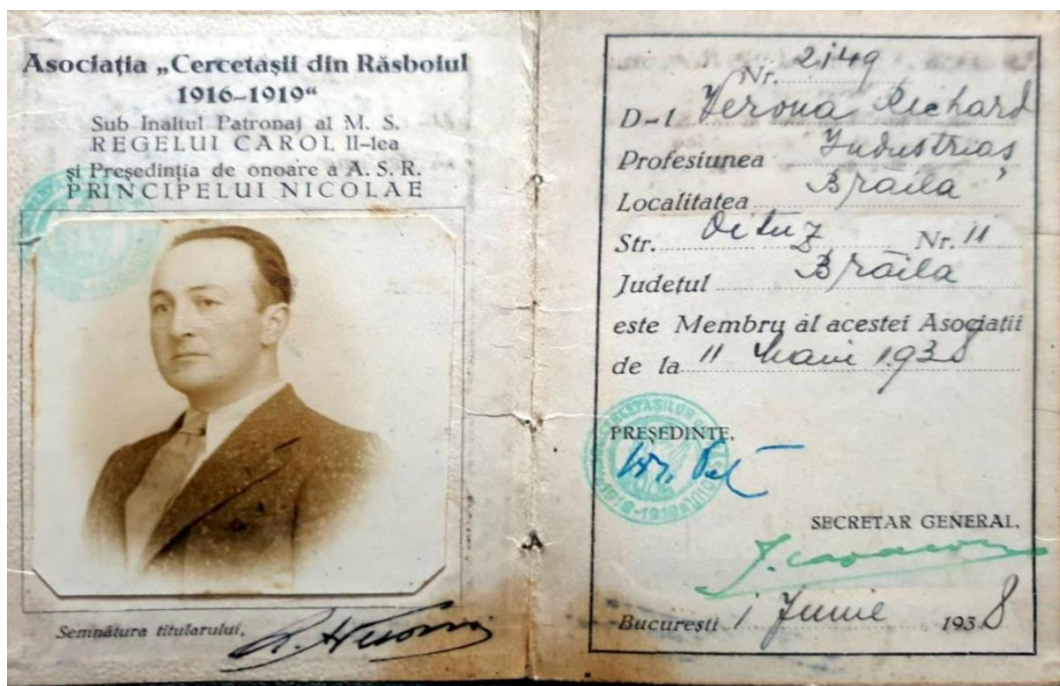 Asociația „Cercetașii din Răsboiul
1916–1919“
Sub Inaltul Patronaj al M. S.
REGELUI CAROL II-lea
și Președinția de onoare a A. S. R.
PRINCIPELUI NICOLAE
Semnătura titularului,
Nr. 2149
D-l Verona Richard
Profesiunea Industriaș
Localitatea Brăila
Str. Oituz Nr. 11
Județul Brăila
este Membru al acestei Asociații
de la 11 1938
PREȘEDINTE,
SECRETAR GENERAL,
București 1 Junie 1938